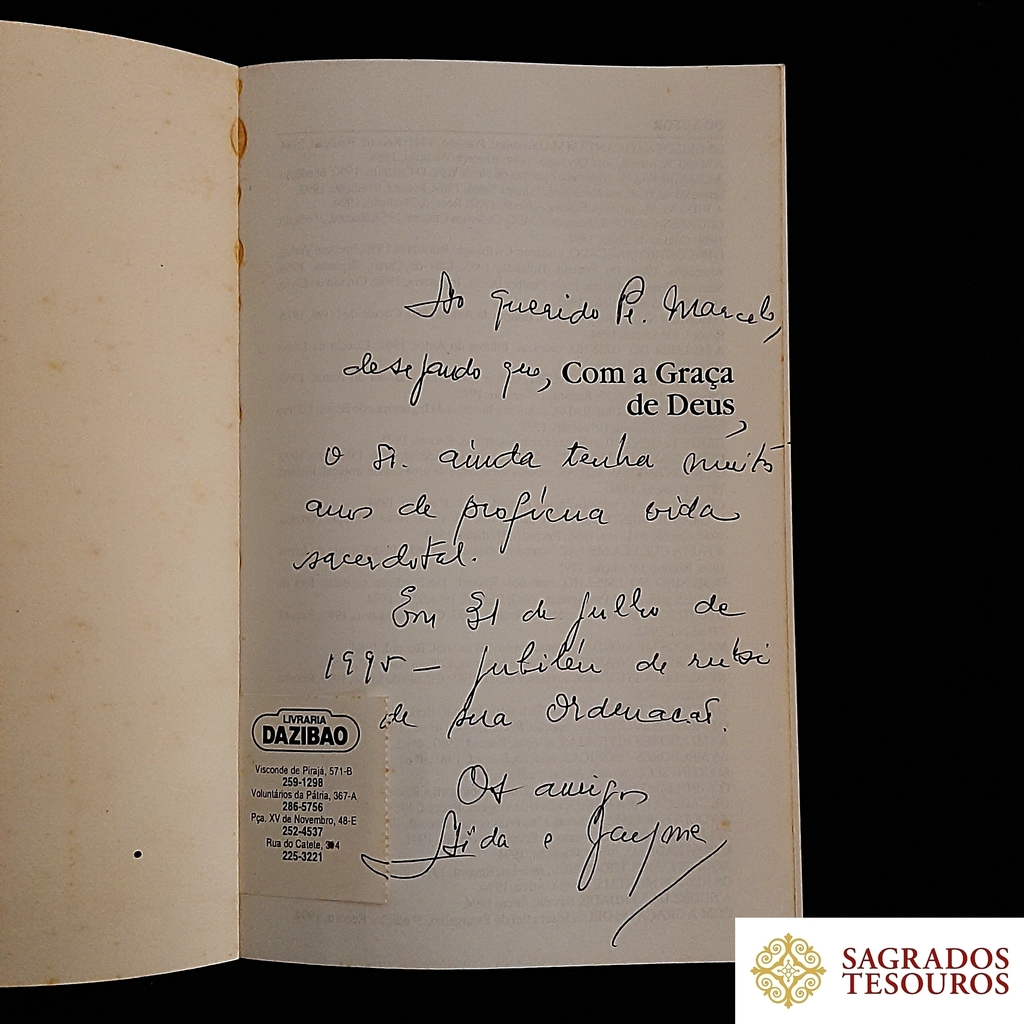 Ao querido Pe. Marcelo,
desejando que, Com a Graça
de Deus,
o Sr. ainda tenha muito
anos de profícua vida
sacerdotal.
Em 31 de julho de
1995 — jubileu de rubi
de sua Ordenação.
Os amigos
Aída e Jayme
LIVRARIA
DAZIBAO
Visconde de Pirajá, 571-B
259-1298
Voluntários da Pátria, 367-A
286-5756
Pça. XV de Novembro, 48-E
252-4537
Rua do Catete,
225-3221
SAGRADOS
TESOUROS